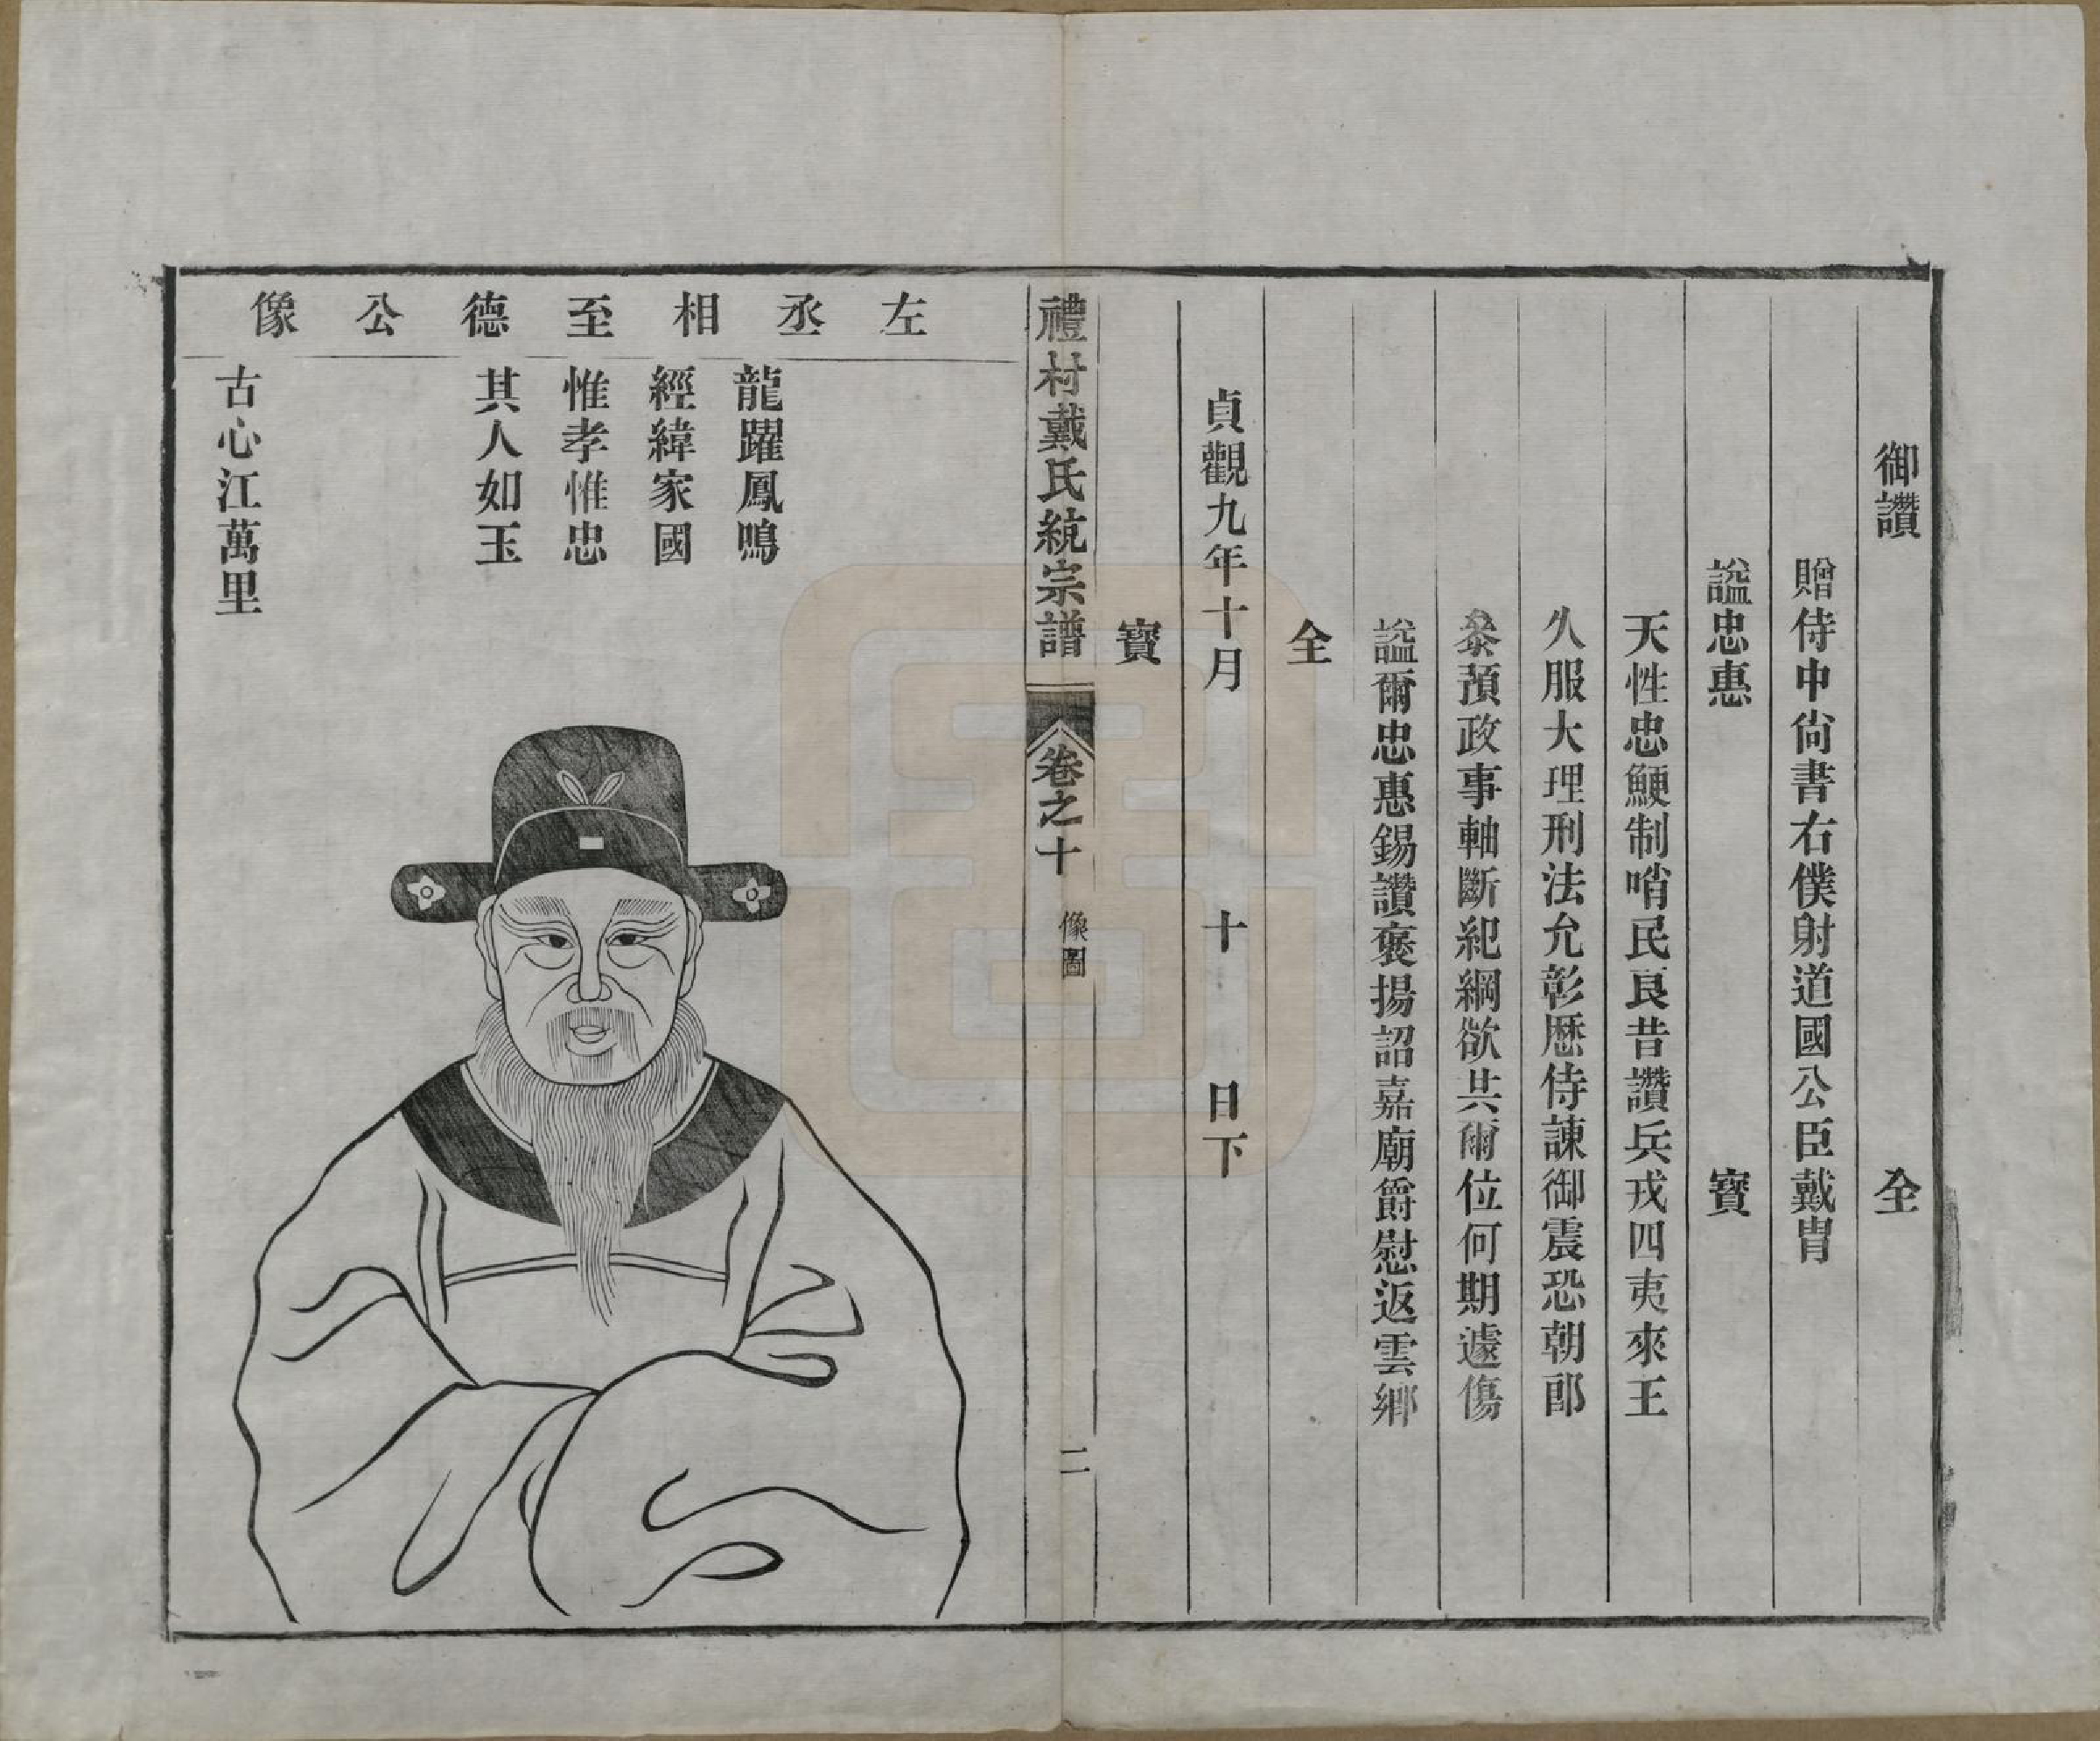 御讚　全
贈侍中尙書右僕射道國公臣戴冑
謚忠惠　寶
天性忠鯁制哨民良昔讚兵戎四夷來王
久服大理刑法允彰歷侍諫御震恐朝郎
叅預政事軸斷紀綱欲共爾位何期遽傷
謚爾忠惠錫讚襃揚詔嘉廟爵慰返雲鄉
全
貞觀九年十月　十　日下
寶
禮村戴氏統宗譜　卷之十　像圖　二
左丞相至德公像
龍躍鳳鳴
經緯家國
惟孝惟忠
其人如玉
古心江萬里